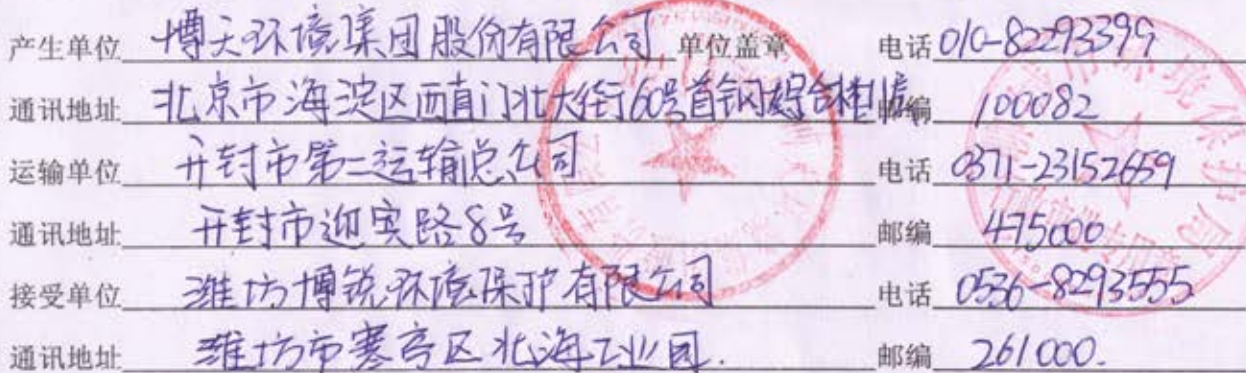 产生单位 博天环境集团股份有限公司 单位盖章 电话 010-82293399
通讯地址 北京市海淀区西直门北大街60号首钢综合楼 邮编 100082
运输单位 开封市第二运输总公司 电话 0371-23152659
通讯地址 开封市迎宾路8号 邮编 475000
接受单位 潍坊博锐环境保护有限公司 电话 0536-8293555
通讯地址 潍坊市寒亭区北海工业园. 邮编 261000.
环境保护局